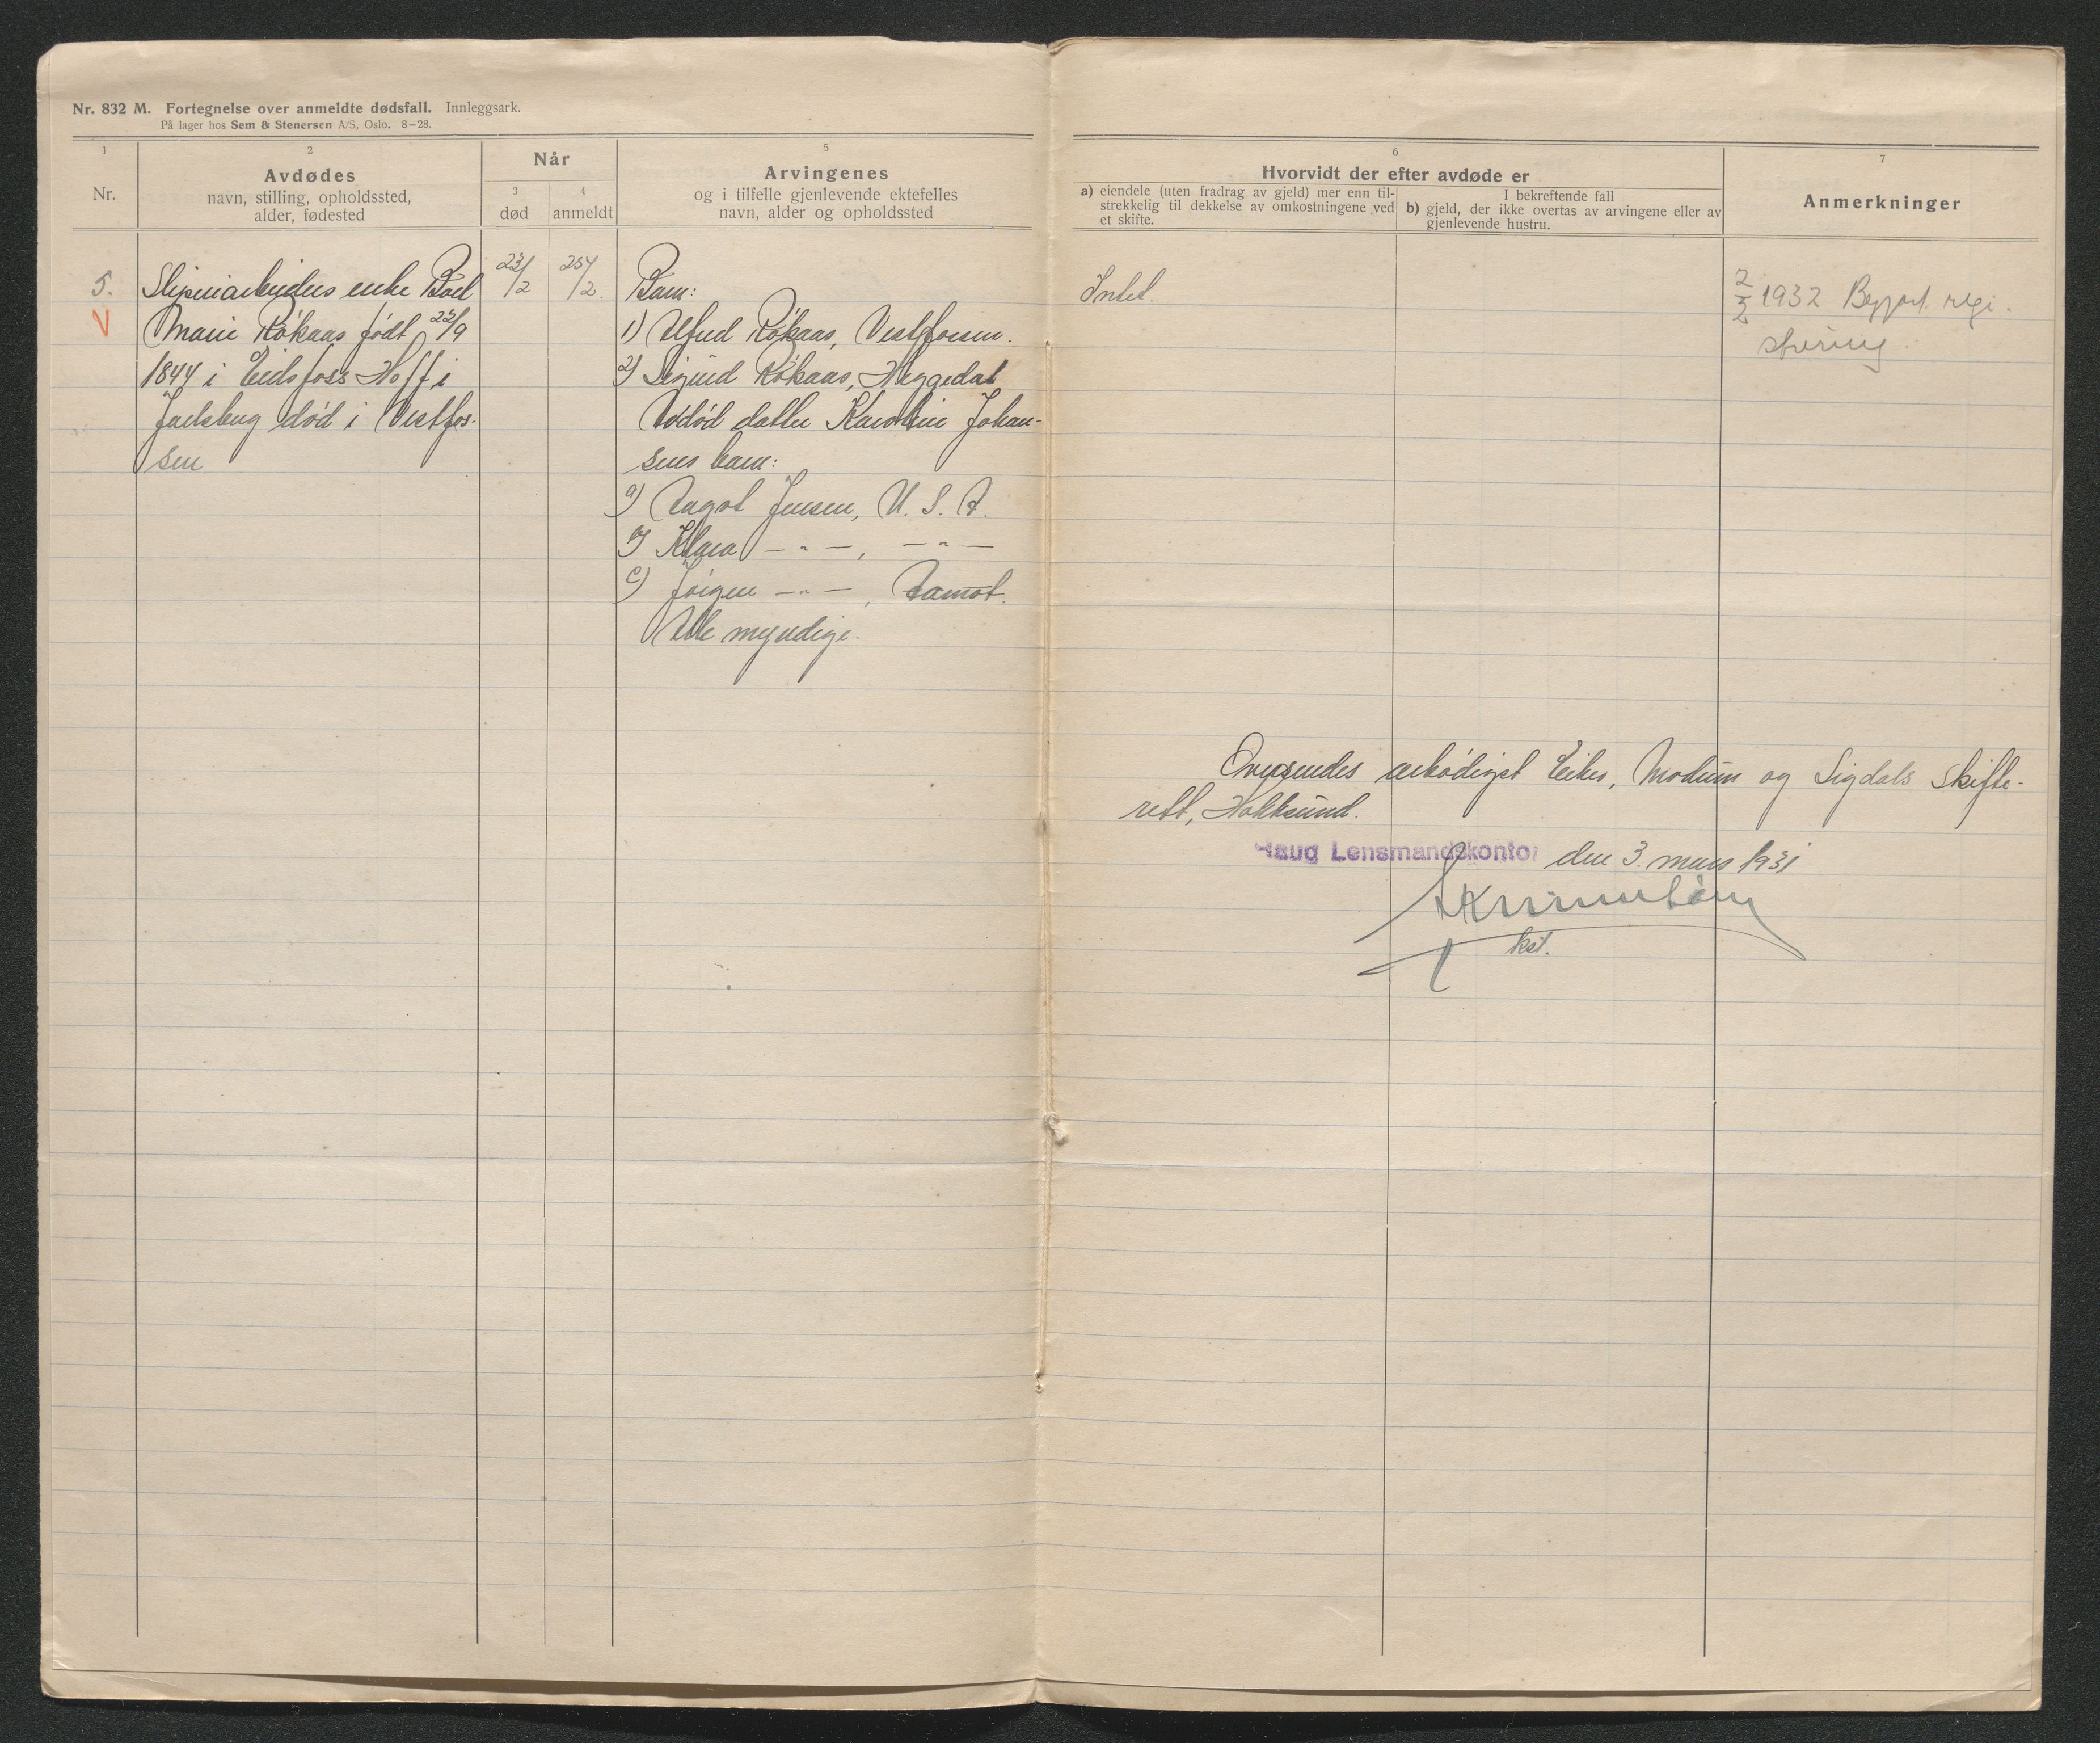 Nr. 832 M. Fortegnelse over anmeldte dødsfall. Innleggsark.
På lager hos Sem & Stenersen A/S, Oslo. 8-28.
1
Nr.
2
Avdødes
navn, stilling, opholdssted,
alder, fødested
Når
3
død
4
anmeldt
5
Arvingenes
og i tilfelle gjenlevende ektefelles
navn, alder og opholdssted
6
Hvorvidt der efter avdøde er
a) eiendele (uten fradrag av gjeld) mer enn til-
strekkelig til dekkelse av omkostningene ved
et skifte.
I bekreftende fall
b) gjeld, der ikke overtas av arvingene eller av
gjenlevende hustru.
7
Anmerkninger
5.
V
Sliperiarbeiders enke Boel
Marie Røkaas født 22/9
1844 i Eidsfoss Hoff i
Jarlsberg død i Vestfos-
sen
23/2
25/2.
Barn:
1) Alfred Røkaas, Vestfossen.
2) Sigurd Røkaas, Heggedal
Avdød datter Karoline Johan-
sens barn:
a) Aagot Jensen, U. S. A.
b) Klara — " — , — " —
c) Jørgen — " — , Aamot.
Alle myndige.
Intet.
2/3 1932 Begjært regi-
strering.
Oversendes ærbødigst Eiker, Modum og Sigdals skifte-
rett, Hokksund.
Haug Lensmandskontor den 3. mars 1931
kst.